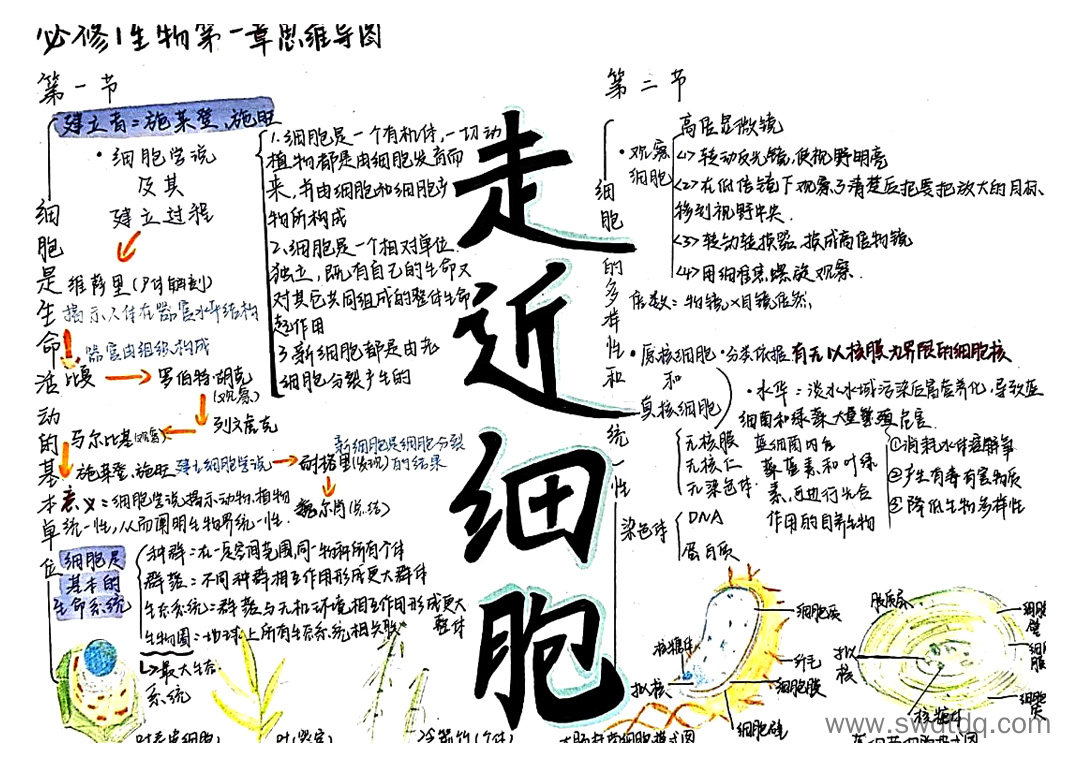 必修1生物第一章思维导图
第一节
细胞是生命活动的基本单位
建立者：施莱登、施旺
·细胞学说
及其
建立过程
维萨里（尸体解剖）
揭示人体在器官水平结构
器官由组织构成
比夏
罗伯特·胡克
（观察）
列文虎克
马尔比基（观察）
施莱登、施旺 建立细胞学说
新细胞是细胞分裂
耐格里（发现）的结果
魏尔肖（总结）
意义：细胞学说揭示动物、植物
统一性，从而阐明生物界统一性.
1.细胞是一个有机体，一切动
植物都是由细胞发育而
来，并由细胞和细胞产
物所构成
2.细胞是一个相对单位.
独立，既有自己的生命又
对其它共同组成的整体生命
起作用
3新细胞都是由老
细胞分裂产生的
细胞是
基本的
生命系统
种群：在一定空间范围，同一物种所有个体
群落：不同种群相互作用形成更大群体
生态系统：群落与无机环境相互作用形成更大
整体
生物圈：地球上所有生态系统相关联
最大生态
系统
走近细胞
第二节
细胞的多样性和统一性
·观察
细胞
高倍显微镜
<1>转动反光镜，使视野明亮
<2>在低倍镜下观察了清楚后把要把放大的目标
移到视野中央.
<3>转动转换器，换成高倍物镜
<4>用细准焦螺旋观察.
倍数：物镜×目镜
·原核细胞
和
真核细胞
·分类依据 有无以核膜为界限的细胞核
·水华：淡水水域污染后富营养化，导致蓝
细菌和绿藻大量繁殖
无核膜
无核仁
无染色体
蓝细菌内含
藻蓝素和叶绿
素，可进行光合
作用的自养生物
①消耗水体溶解氧
②产生有毒有害物质
③降低生物多样性
染色体
DNA
蛋白质
细胞质
核糖体
拟核
纤毛
细胞膜
细胞壁
拟核
核糖体
www.swdtdq.com